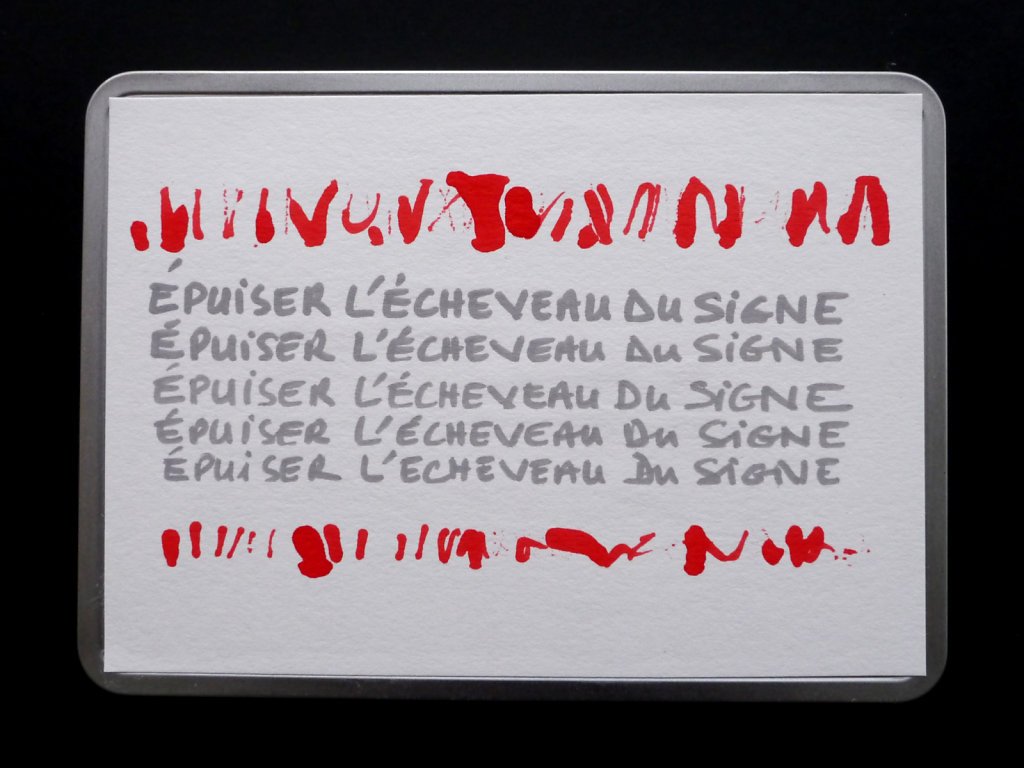 ÉPUiSER L'ÉCHEVEAU DU SiGNE
ÉPUiSER L'ÉCHEVEAU DU SiGNE
ÉPUiSER L'ÉCHEVEAU DU SiGNE
ÉPUiSER L'ÉCHEVEAU DU SiGNE
ÉPUiSER L'ECHEVEAU DU SiGNE